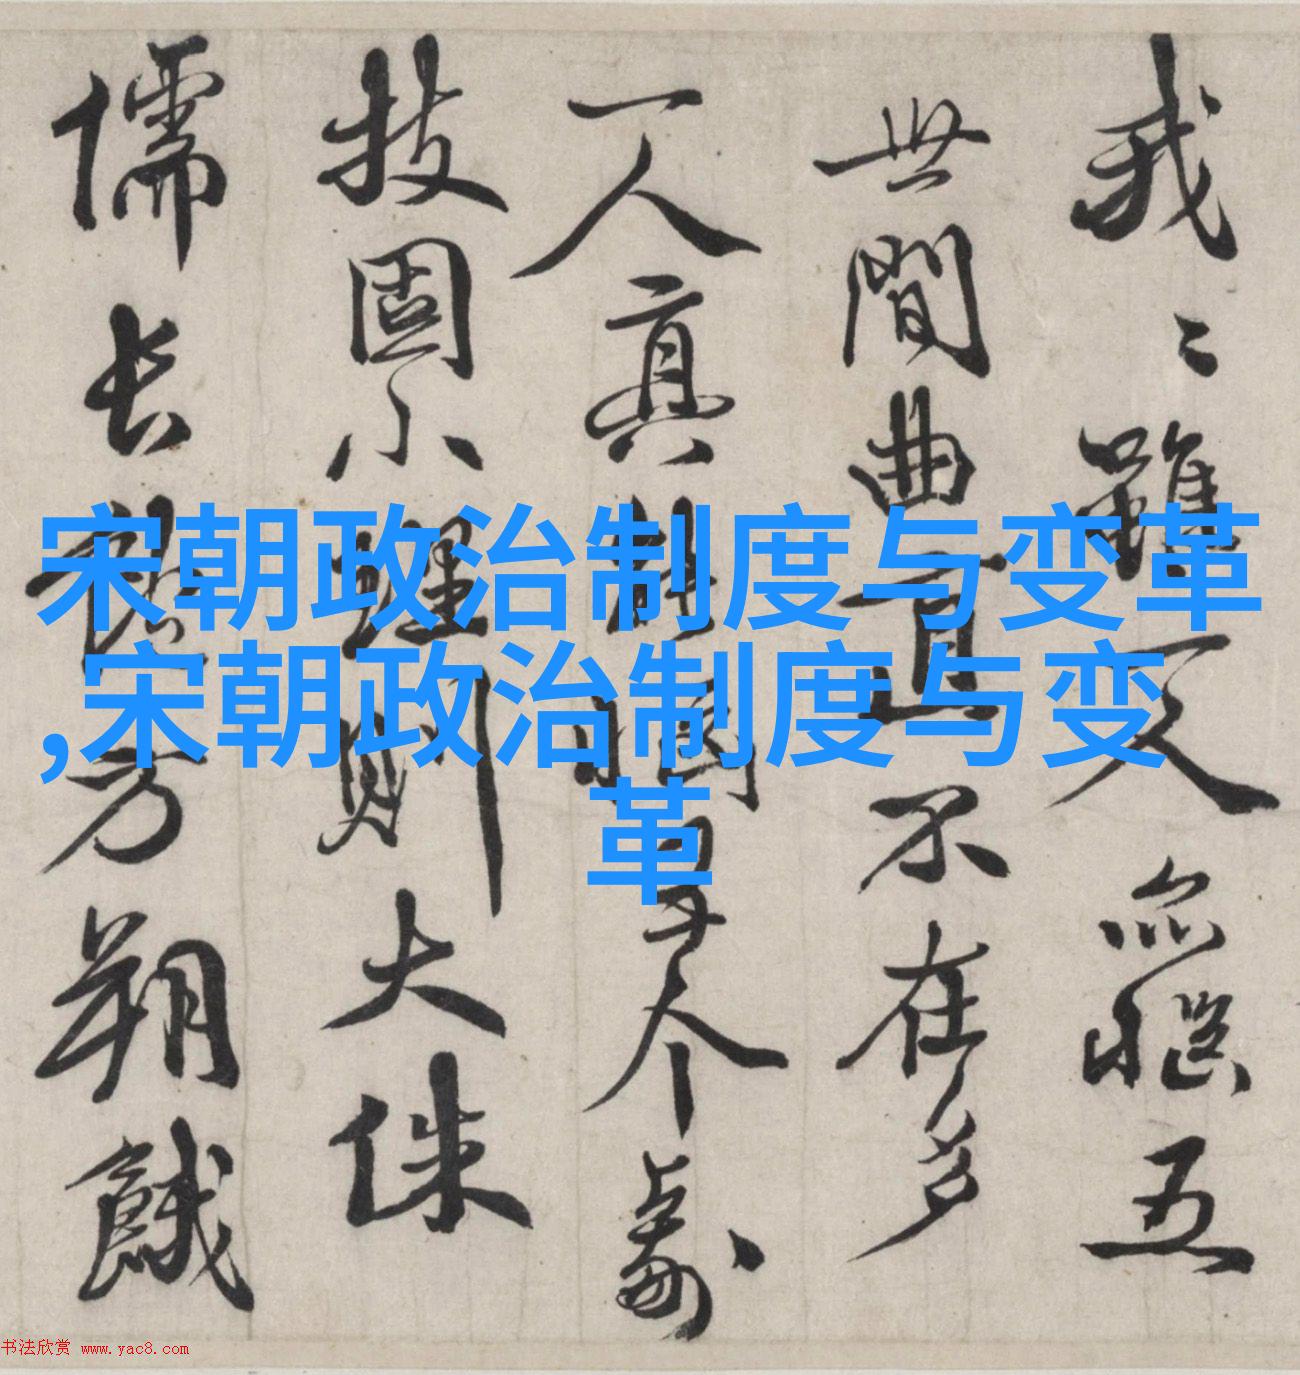 宋朝政治制度与变革
,宋朝政治制度与变
革
我雖五
世間曲直不在多
一人真
技固小理則大侏
儒長方朔餓
书法欣赏 www.yac8.com